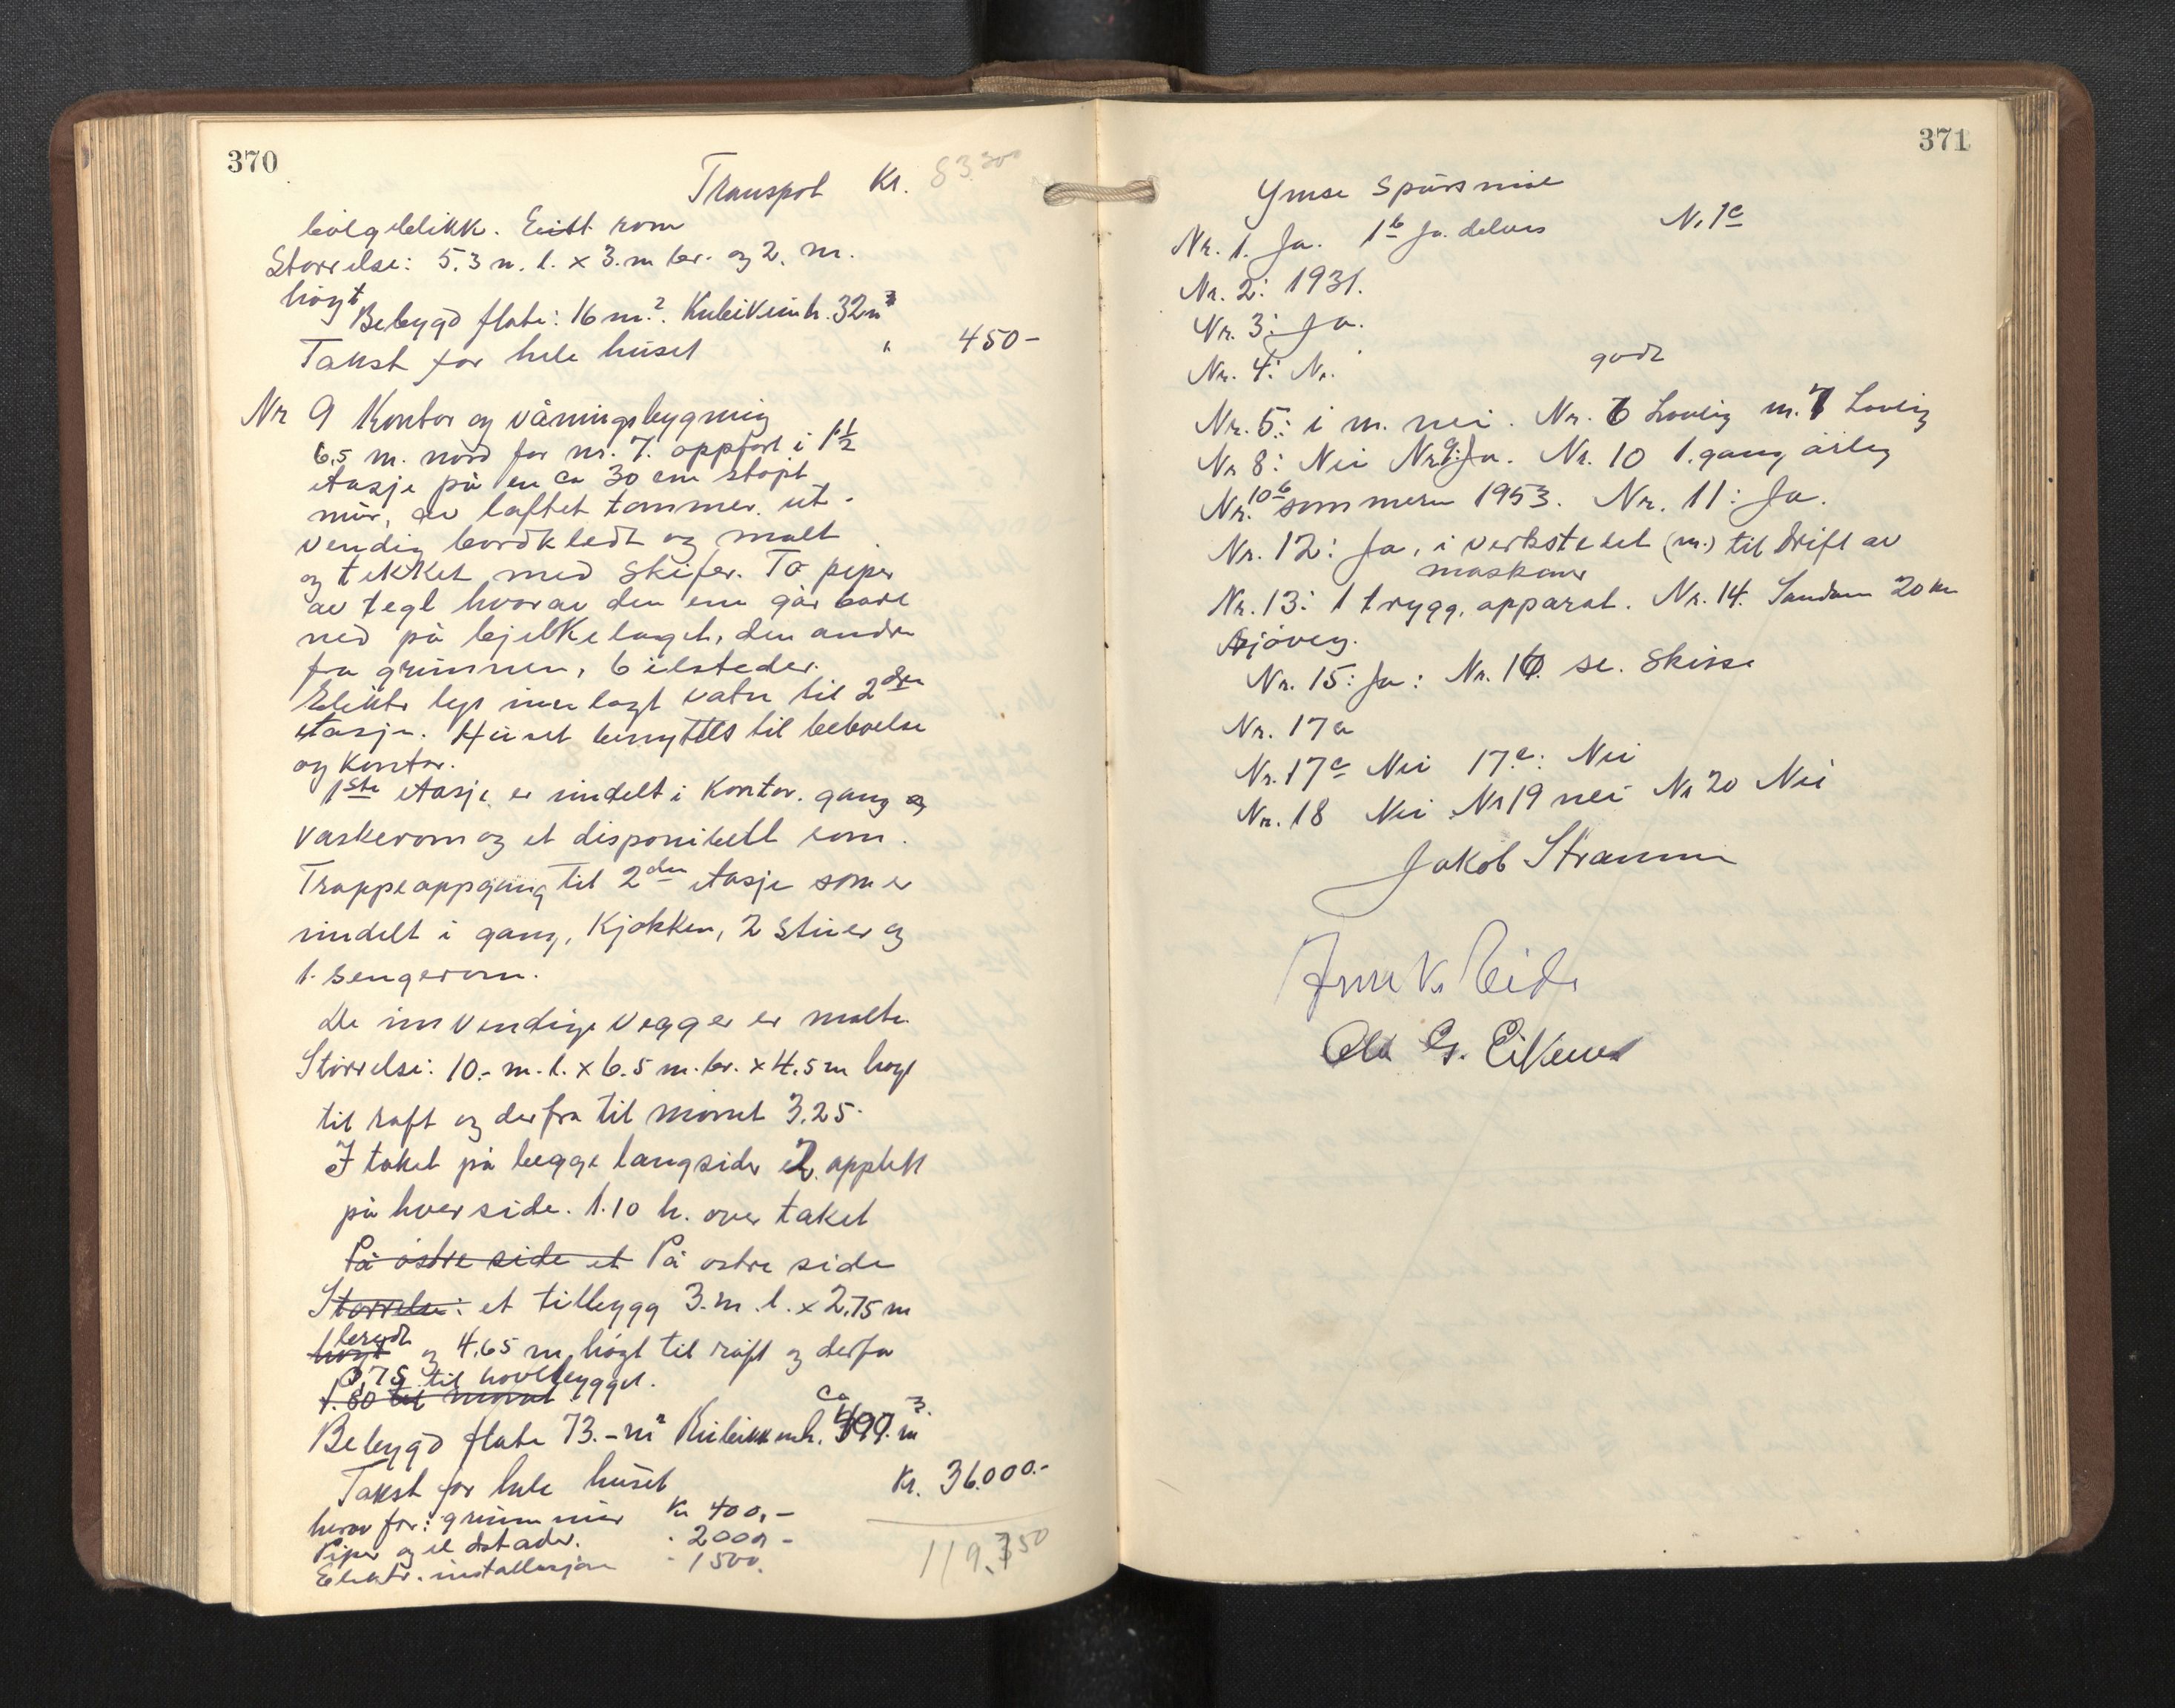 370
Transport Kr. 83.300
bölgeblikk. Eitt rom
Storrelse: 5.3 m. l. x 3. m br. og 2. m.
högt
Bebygd flate: 16 m.² Kubikkinh. 32 m³
Takst for hele huset " 450-
Nr 9 Kontor og våningsbygning
6,5 m. nord for nr. 7. oppfort i 1½
etasje på en ca 30 cm stöpt
mür, av laftet tommer. ut-
vendig bordkledt og malt
og tekket med skifer. To piper
av tegl hvorav den ene går bare
ned på bjelkelaget, den andre
fra grünnen, 6 ilsteder.
Elektr lys inn lagt vatn til 2den
etasje. Hüset benyttes til beboelse
og Kontor.
1ste etasje er inndelt i Kontor. gang og
vaskerom og et disponibelt rom.
Trappeoppgang til 2den etasje som er
inndelt i gang, Kjökken, 2 stüer og
1. sengerom.
De innvendige vegger er malte.
Störrelse: 10.- m. l. x 6.5 m. br. x 4.5 m högt
til raft og derfra til mönet 3.25.
I taket på begge langsider 2. opplett
på hver side. 1.10 h. over taket
På östre side et På ostre side
Storrelse: et tilbygg 3. m. l. x 2.75 m
bredt
högt og 4.65 m högt til raft og derfra
0.75 til hovedbygget.
1.80 til mönet
ca
Bebygd flate 73.- m² Kubikkinh. 499. m³.
Takst for hele hüset Kr. 36.000.-
herav for: grünnmür Kr 400,-
Piper og ildstader. " 2000,-
Elektr. installasjon - 1500.
119.750
371
Ymse Spürsmål
Nr. 1. Ja. 1b Ja. delvis N. 1c
Nr. 2: 1931.
Nr. 3: Ja.
Nr. 4: N.
godt
Nr. 5: i m. nei. Nr. 6 Lovlig m. 7 Lovlig
Nr 8: Nei Nr 9: Ja. Nr. 10 1. gang årleg
Nr. 10b sommeren 1953. Nr. 11: Ja.
Nr. 12: Ja, i verkstedet (m.) til drift av
maskiner
Nr. 13: 1 trygg. apparat. Nr. 14. Sandane 20 km
sjöveg.
Nr. 15: Ja: Nr. 16. se. Skisse
Nr. 17a
Nr. 17c Nei 17.e: Nei
Nr. 18 Nei Nr 19 nei Nr 20 Nei
Jakob Straume
Arne K. Eide
Ola G. Eikenes